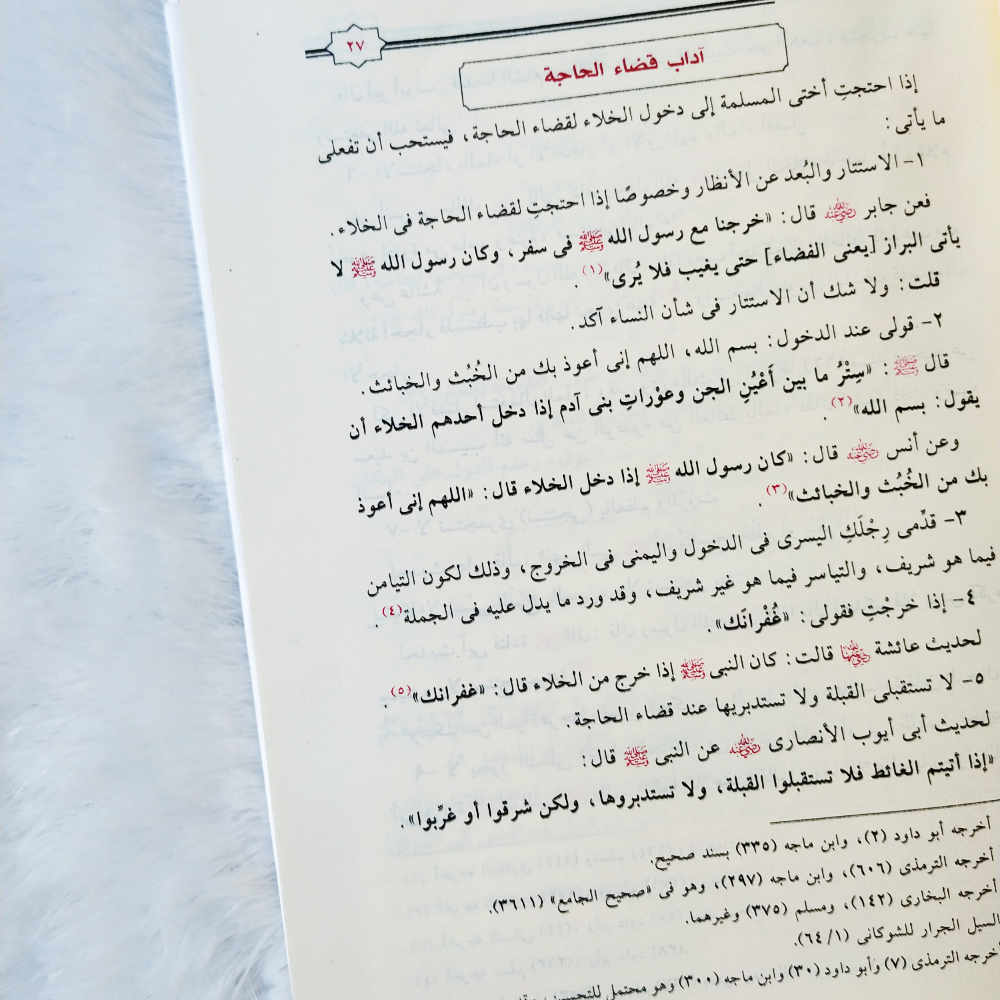 ٢٧
آداب قضاء الحاجة
إذا احتجتِ أختى المسلمة إلى دخول الخلاء لقضاء الحاجة، فيستحب أن تفعلى
ما يأتى:
١- الاستتار والبُعد عن الأنظار وخصوصًا إذا احتجتِ لقضاء الحاجة فى الخلاء.
فعن جابر رضي الله عنه قال: «خرجنا مع رسول الله ﷺ فى سفر، وكان رسول الله ﷺ لا
يأتى البراز [يعنى الفضاء] حتى يغيب فلا يُرى»(١).
قلت: ولا شك أن الاستتار فى شأن النساء آكد.
٢- قولى عند الدخول: بسم الله، اللهم إنى أعوذ بك من الخُبُث والخبائث.
قال ﷺ: «سِتْرُ ما بين أَعْيُنِ الجن وعوْراتِ بنى آدم إذا دخل أحدهم الخلاء أن
يقول: بسم الله»(٢).
وعن أنس رضي الله عنه قال: «كان رسول الله ﷺ إذا دخل الخلاء قال: «اللهم إنى أعوذ
بك من الخُبُث والخبائث»(٣).
٣- قدِّمى رِجْلَكِ اليسرى فى الدخول واليمنى فى الخروج، وذلك لكون التيامن
فيما هو شريف، والتياسر فيما هو غير شريف، وقد ورد ما يدل عليه فى الجملة(٤).
٤- إذا خرجْتِ فقولى: «غُفْرانَك».
لحديث عائشة رضي الله عنها قالت: كان النبى ﷺ إذا خرج من الخلاء قال: «غفرانك»(٥).
٥- لا تستقبلى القبلة ولا تستدبريها عند قضاء الحاجة.
لحديث أبى أيوب الأنصارى رضي الله عنه عن النبى ﷺ قال:
«إذا أتيتم الغائط فلا تستقبلوا القبلة، ولا تستدبروها، ولكن شرقوا أو غرِّبوا».
أخرجه أبو داود (٢)، وابن ماجه (٣٣٥) بسند صحيح.
أخرجه الترمذى (٦٠٦)، وابن ماجه (٢٩٧)، وهو فى «صحيح الجامع» (٣٦١١).
أخرجه البخارى (١٤٢)، ومسلم (٣٧٥) وغيرهما.
السيل الجرار للشوكانى (١/ ٦٤).
أخرجه الترمذى (٧) وأبو داود (٣٠) وابن ماجه (٣٠٠) وهو محتمل للتحسين